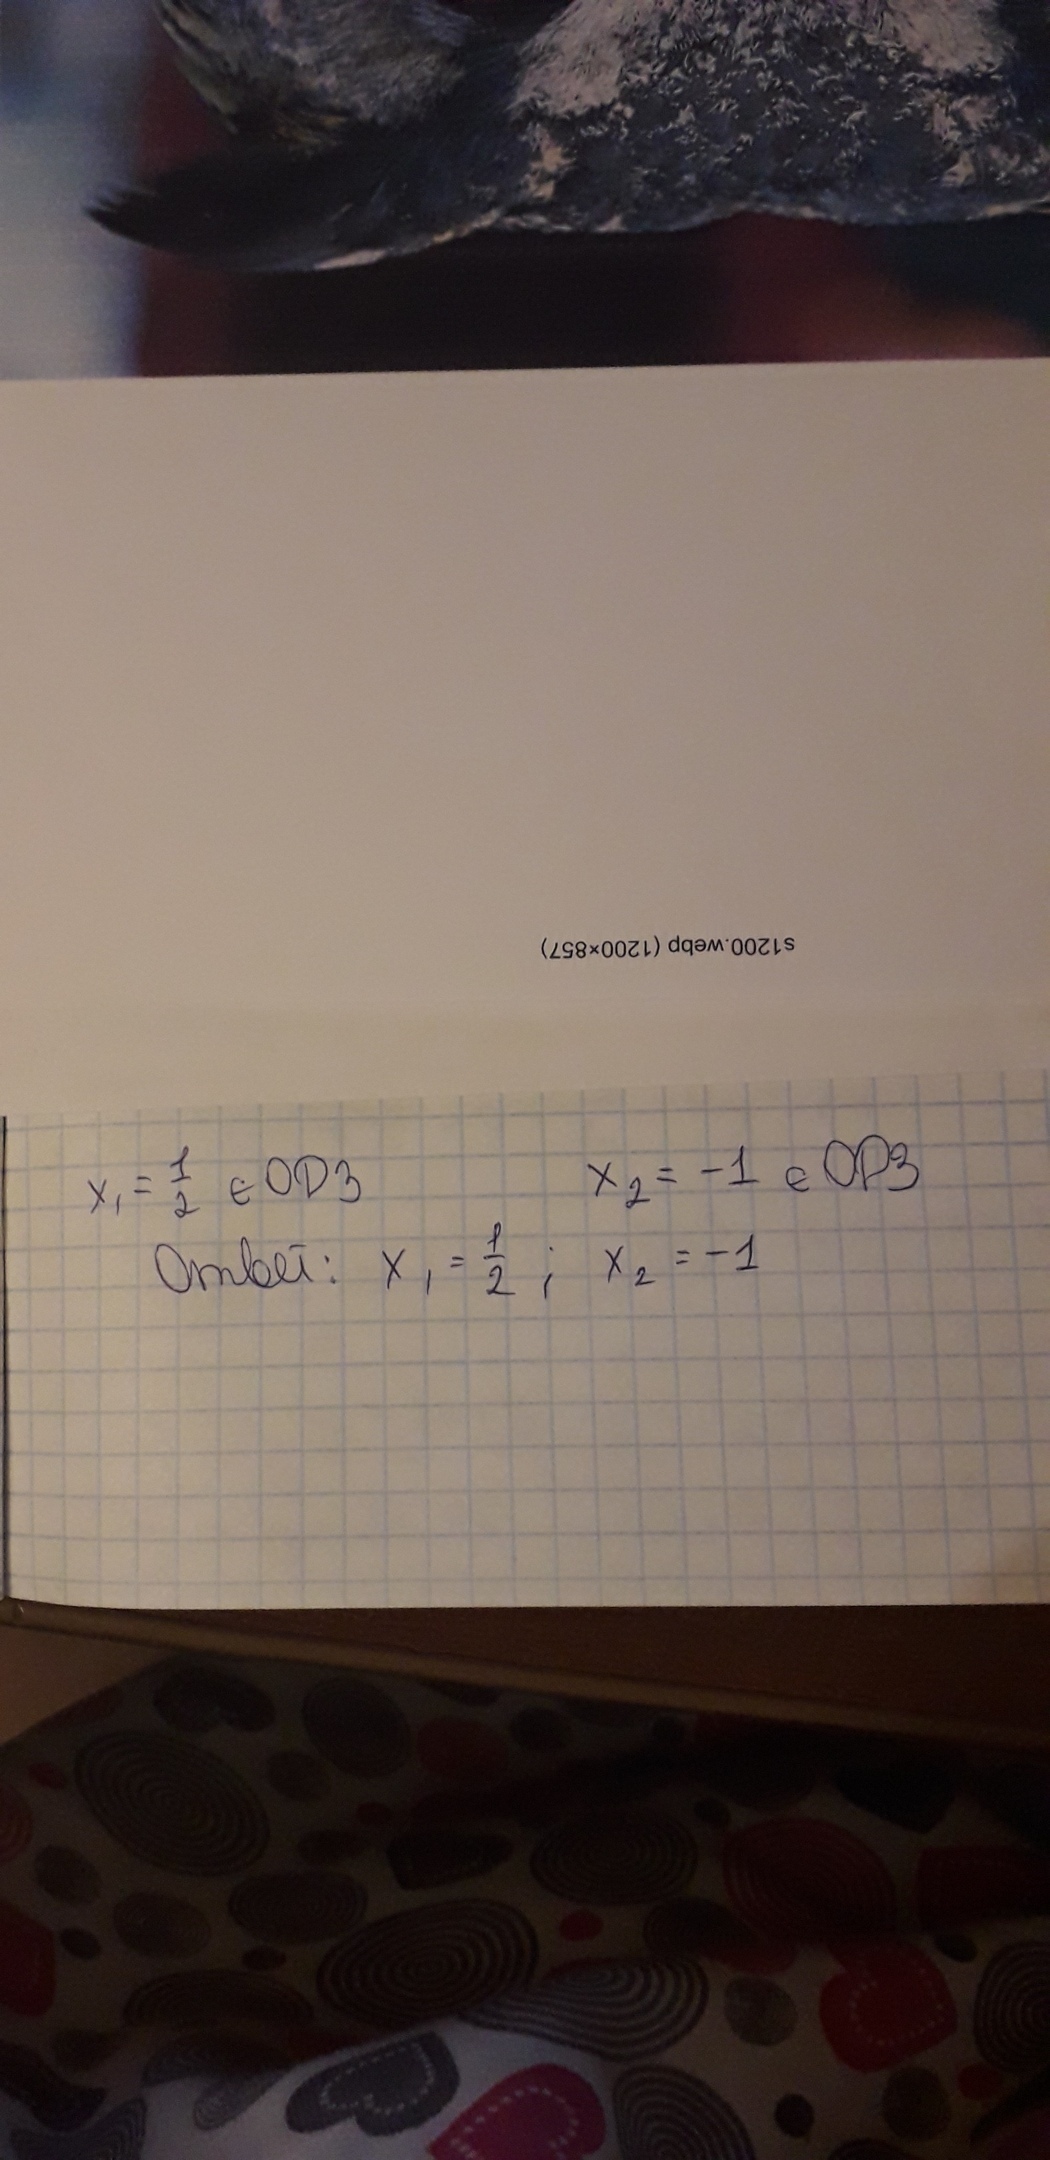 s1200.webp (1200×857)
x₁ = 1/2 ∈ ОДЗ x₂ = -1 ∈ ОДЗ
Ответ: x₁ = 1/2 ; x₂ = -1